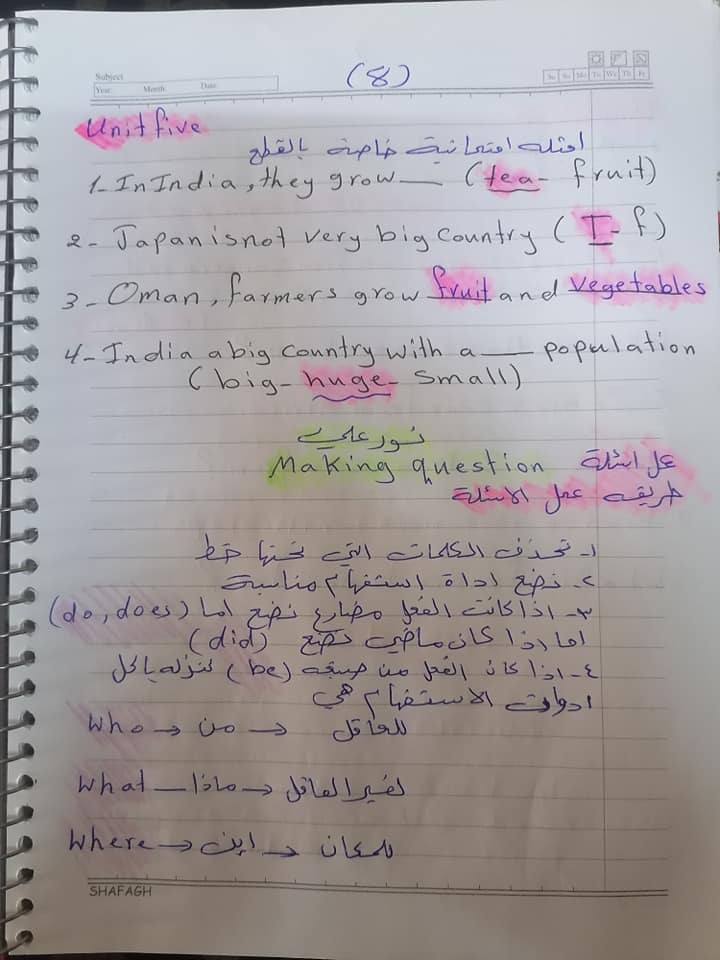 (8)
Subject
Year: Month: Date:
Sa Su Mo Tu We Th Fr
Unit five
امثله امتحانية خاصة بالقطع
1- In India, they grow ___ (tea - fruit)
2- Japan is not very big country (T - f)
3- Oman, farmers grow fruit and vegetables
4- India a big country with a ___ population
(big - huge - small)
نور علي
Making question عمل اسئلة
طريقه عمل الاسئلة
١- تحذف الكلمات التي تحتها خط
٢- نضع اداة استفهام مناسبة
٣- اذا كانت الفعل مضارع نضع اما (do, does)
اما اذا كان ماضي نضع (did)
٤- اذا كان الفعل من صيغه (be) ننزله ياكل
ادوات الاستفهام هي
Who → من → للعاقل
What — ماذا → لغير العاقل
Where → اين → للمكان
SHAFAGH